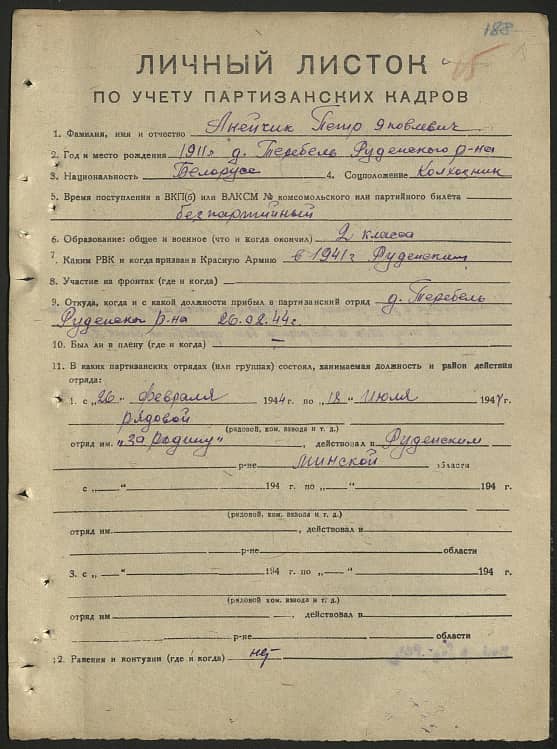 188
65
ЛИЧНЫЙ ЛИСТОК
ПО УЧЕТУ ПАРТИЗАНСКИХ КАДРОВ
1. Фамилия, имя и отчество Акейчик Петр Яковлевич
2. Год и место рождения 1911 г д. Теребель Руденского р-на
3. Национальность Белорусс 4. Соцположение Колхозник
5. Время поступления в ВКП(б) или ВЛКСМ № комсомольского или партийного билета
безпартийный
6. Образование: общее и военное (что и когда окончил) 2 класса
7. Каким РВК и когда призван в Красную Армию в 1941 г Руденским
8. Участие на фронтах (где и когда)
9. Откуда, когда и с какой должности прибыл в партизанский отряд д. Теребель
Руденск р-на 26.02.44 г.
10. Был ли в плену (где и когда) —
11. В каких партизанских отрядах (или группах) состоял, занимаемая должность и район действия
отряда:
1. с „26" февраля 1944 г. по „18" июля 1944 г.
рядовой
(рядовой, ком. взвода и т. д.)
отряд им. „За Родину" , действовал в Руденским
р-не Минской области
с „—" 194 г. по „—" 194 г.
(рядовой, ком. взвода и т. д.)
отряд им , действовал в
р-не области
3. с „—" 194 г. по „—" 194 г.
(рядовой ком. взвода и т. д.)
отряд им , действовал в
р-не области
12. Ранения и контузии (где и когда) нет